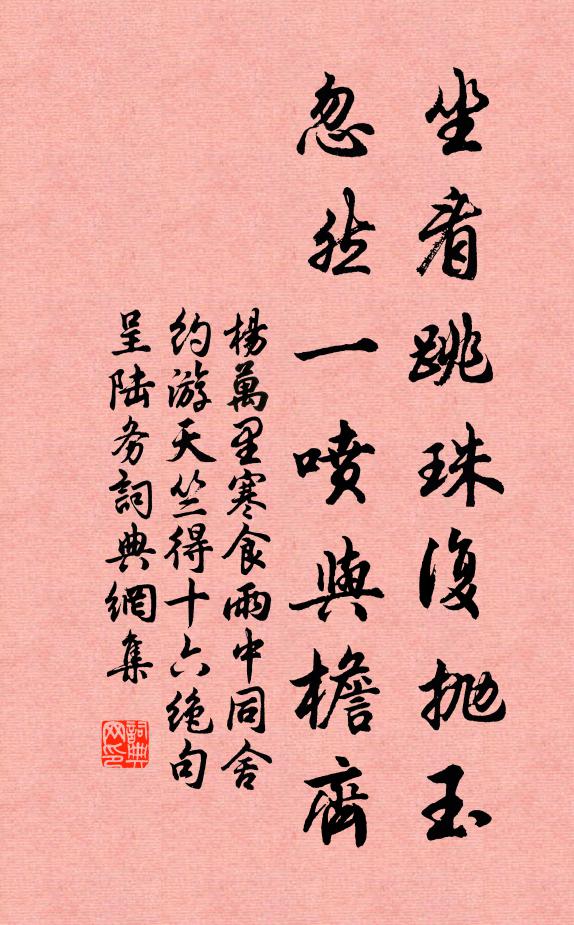 坐看跳珠復拋玉
忽然一噴與檐齊
楊萬里寒食雨中同舍
約游天竺得十六絕句
呈陆务詞典網集
詞典網印